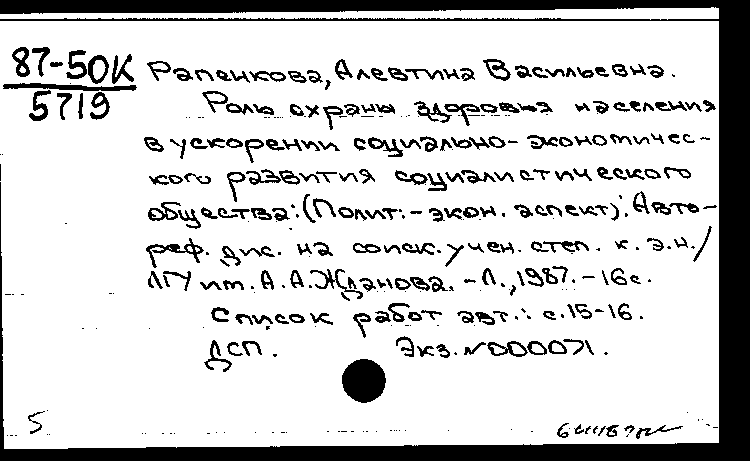 87-50К
5719
Рапенкова, Алевтина Васильевна.
Роль охраны здоровья населения
в ускорении социально-экономичес-
кого развития социалистического
общества: (Полит.-экон. аспект): Авто-
реф. дис. на соиск. учен. степ. к. э.н./
ЛГУ им. А.А.Жданова. -Л., 1987. -16с.
Список работ авт.: с.15-16.
ДСП. Экз.N000071.
5